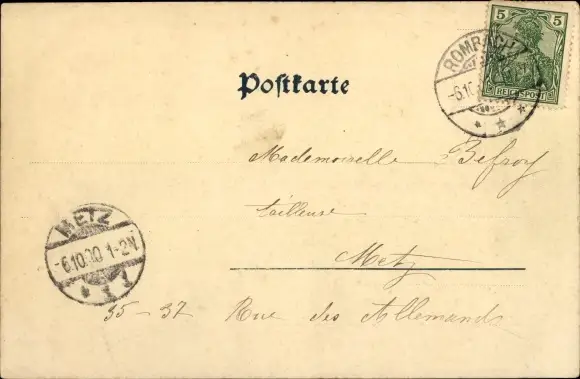 5 5
REICHSPOST
ROMBACH
-6.10.
Postkarte
Mademoiselle Befroy
tailleuse
Metz
METZ
-6.10.00 1-2N.
35-37 Rue des Allemands